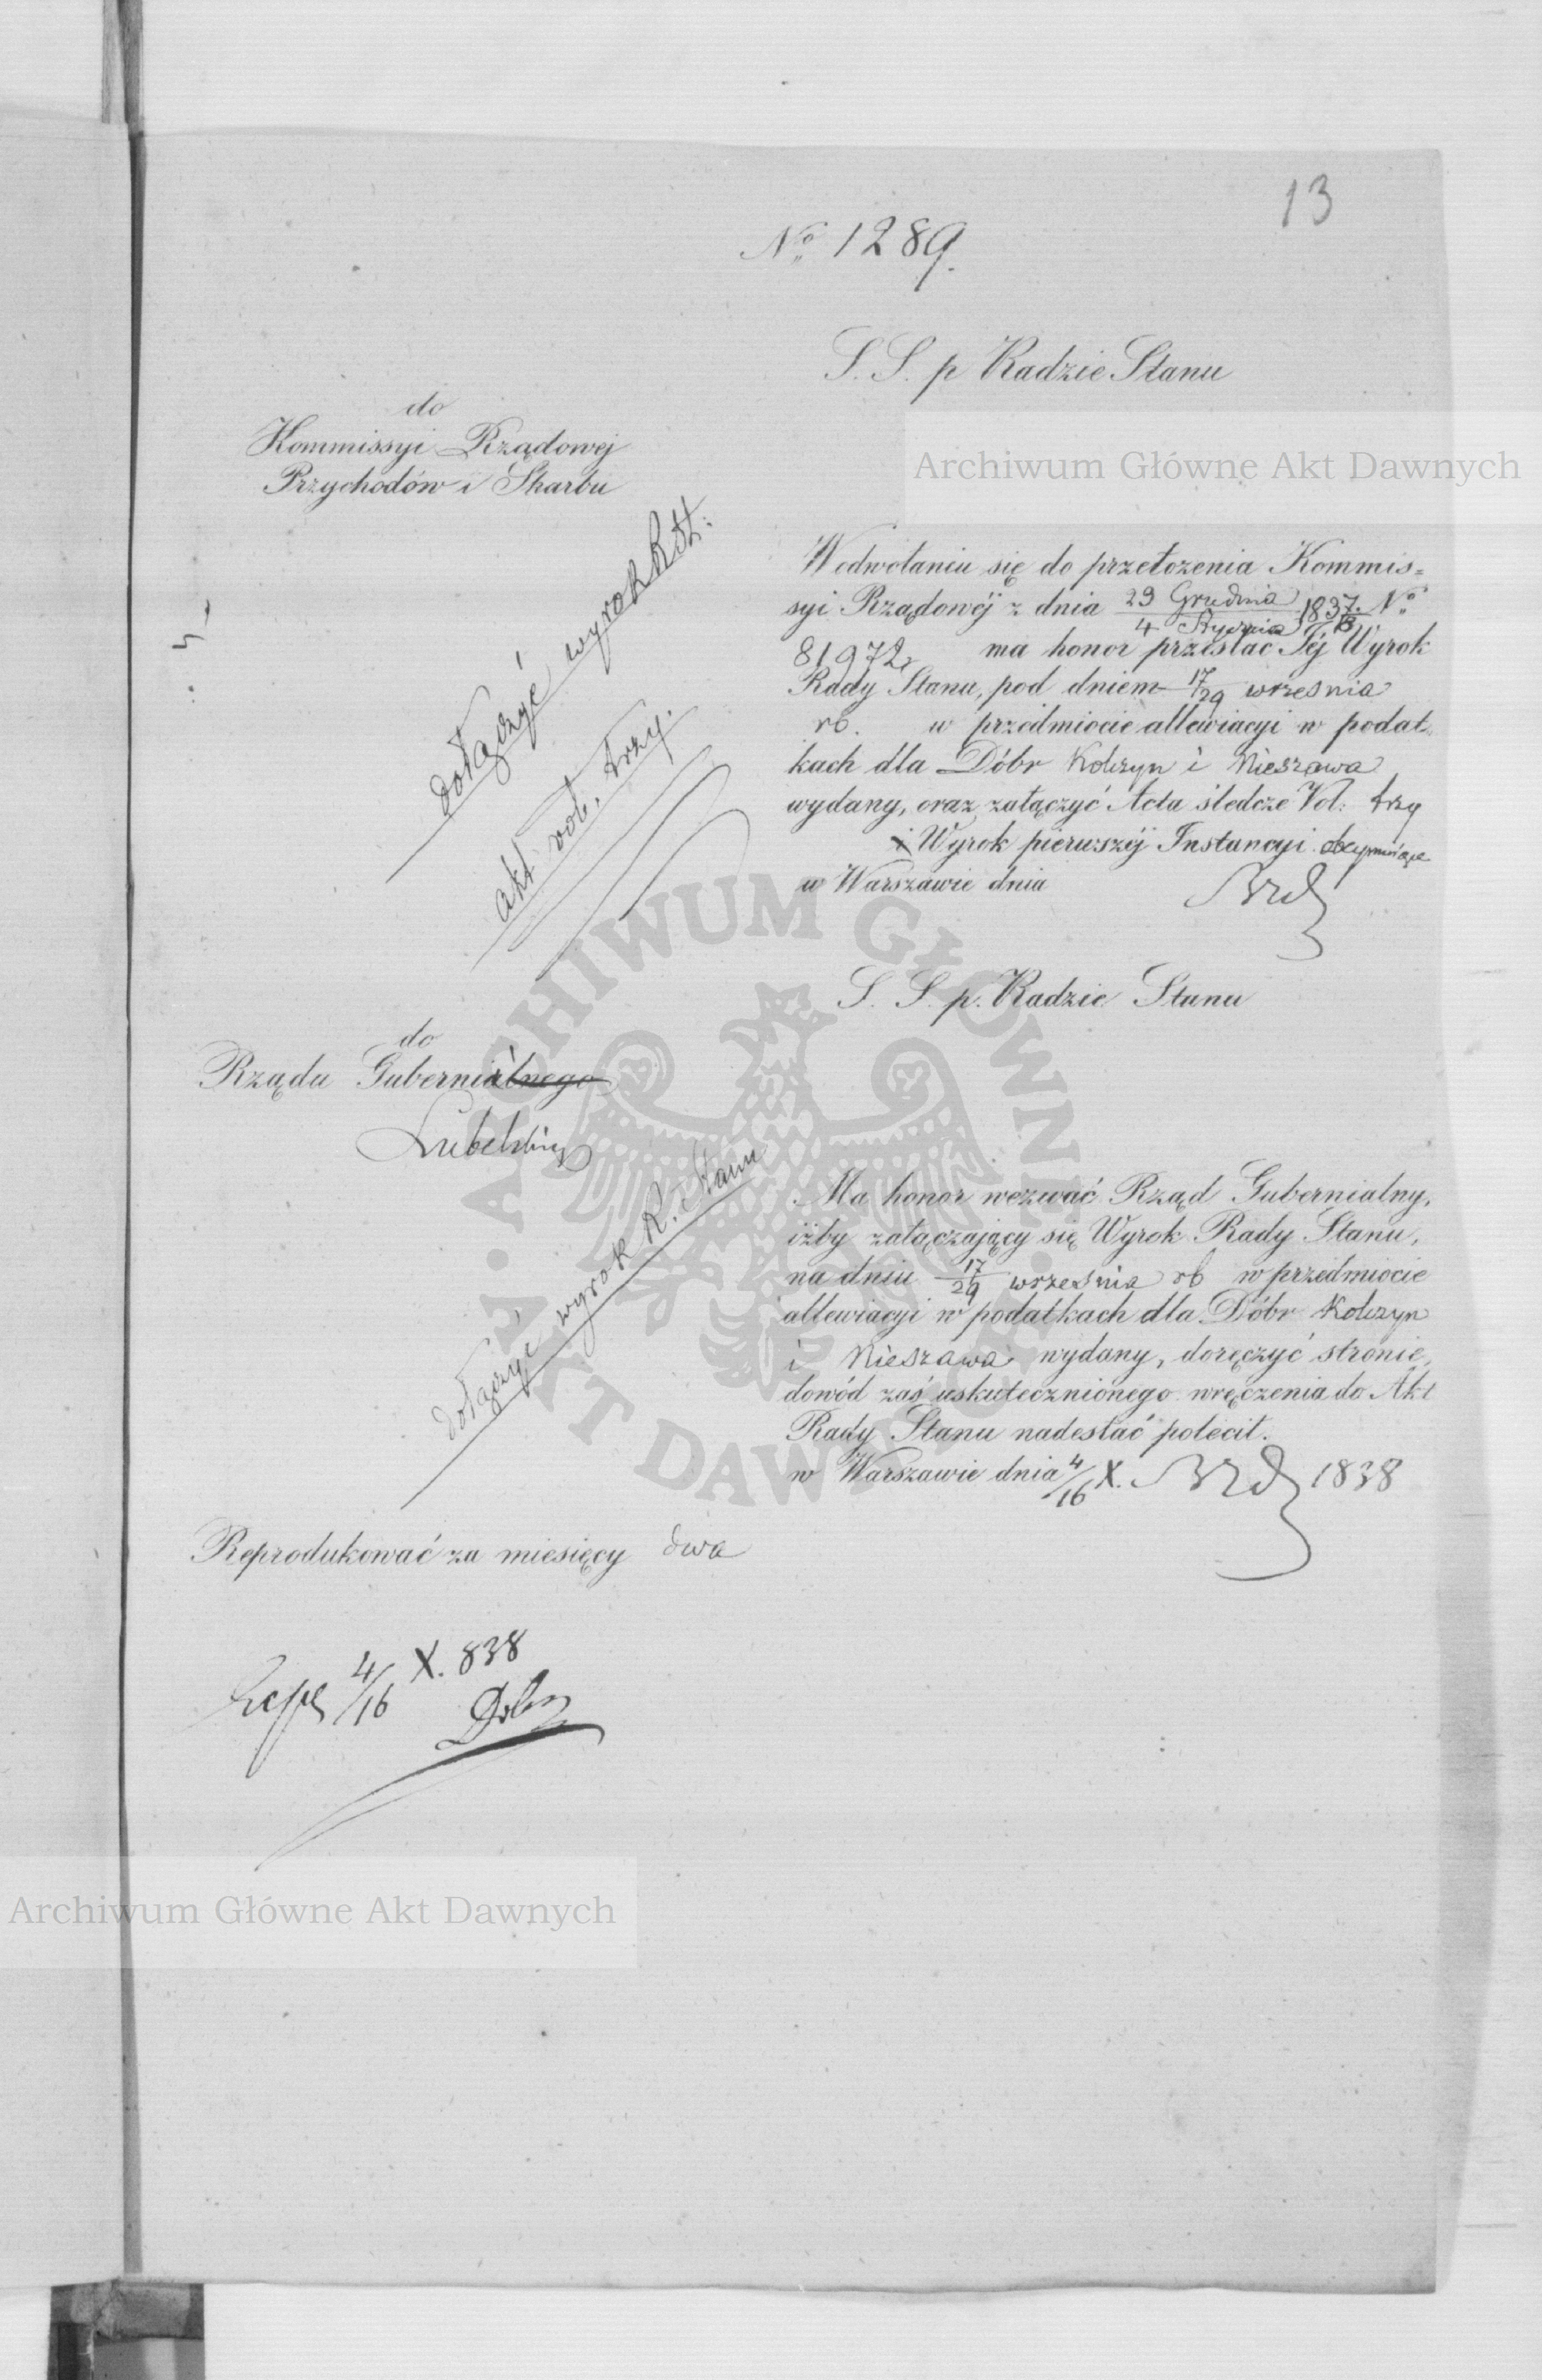 13
Nо 1289.
S. S. p Radzie Stanu
do
Kommissyi Rządowej
Przychodów i Skarbu
W odwołaniu się do przełożenia Kommis=
syi Rządowéj z dnia 23 Grudnia / 4 Stycznia 1837/8. No
81972, ma honor przesłać Téj Wyrok
Rady Stanu, pod dniem 17/29 września
rb. w przedmiocie allewiacyi w podat=
kach dla Dóbr Kolczyn i Nieszawa
wydany, oraz załączyć Acta śledcze Vol: trzy
i Wyrok pierwszéj Instancyi obejmujące
w Warszawie dnia
dołączyć wyrok RSt:
akt vol. trzy.
S. S. p. Radzie Stanu
do
Rządu Gubernialnego
Lubelskiego
Ma honor wezwać Rząd Gubernialny,
iżby załączający się Wyrok Rady Stanu,
na dniu 17/29 września rb w przedmiocie
allewiacyi w podatkach dla Dóbr Kolczyn
i Nieszawa wydany, doręczyć stronie,
dowód zaś uskutecznionego wręczenia do Akt
Rady Stanu nadesłać polecił.
w Warszawie dnia 4/16 X. 1838
dołączyć wyrok R. Stanu
Reprodukować za miesięcy dwa
4/16 X. 838
Archiwum Główne Akt Dawnych
ARCHIWUM GŁÓWNE AKT DAWNYCH
Archiwum Główne Akt Dawnych